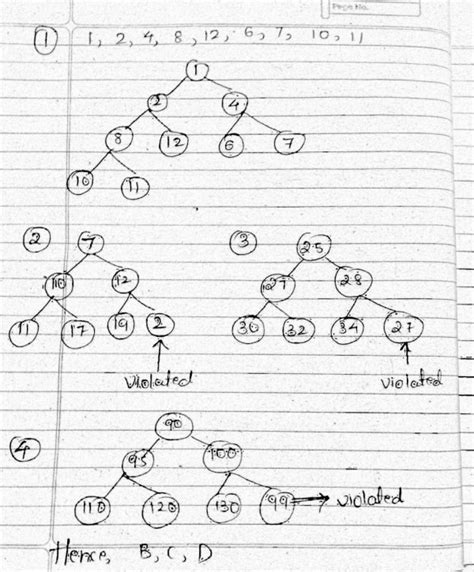 Page No.
1 1, 2, 4, 8, 12, 6, 7, 10, 11
1
2 4
8 12 6 7
10 11
2 7 3 25
10 12 27 28
11 17 19 2 30 32 34 27
violated violated
4 90
95 100
110 120 130 99 violated
Hence, B, C, D